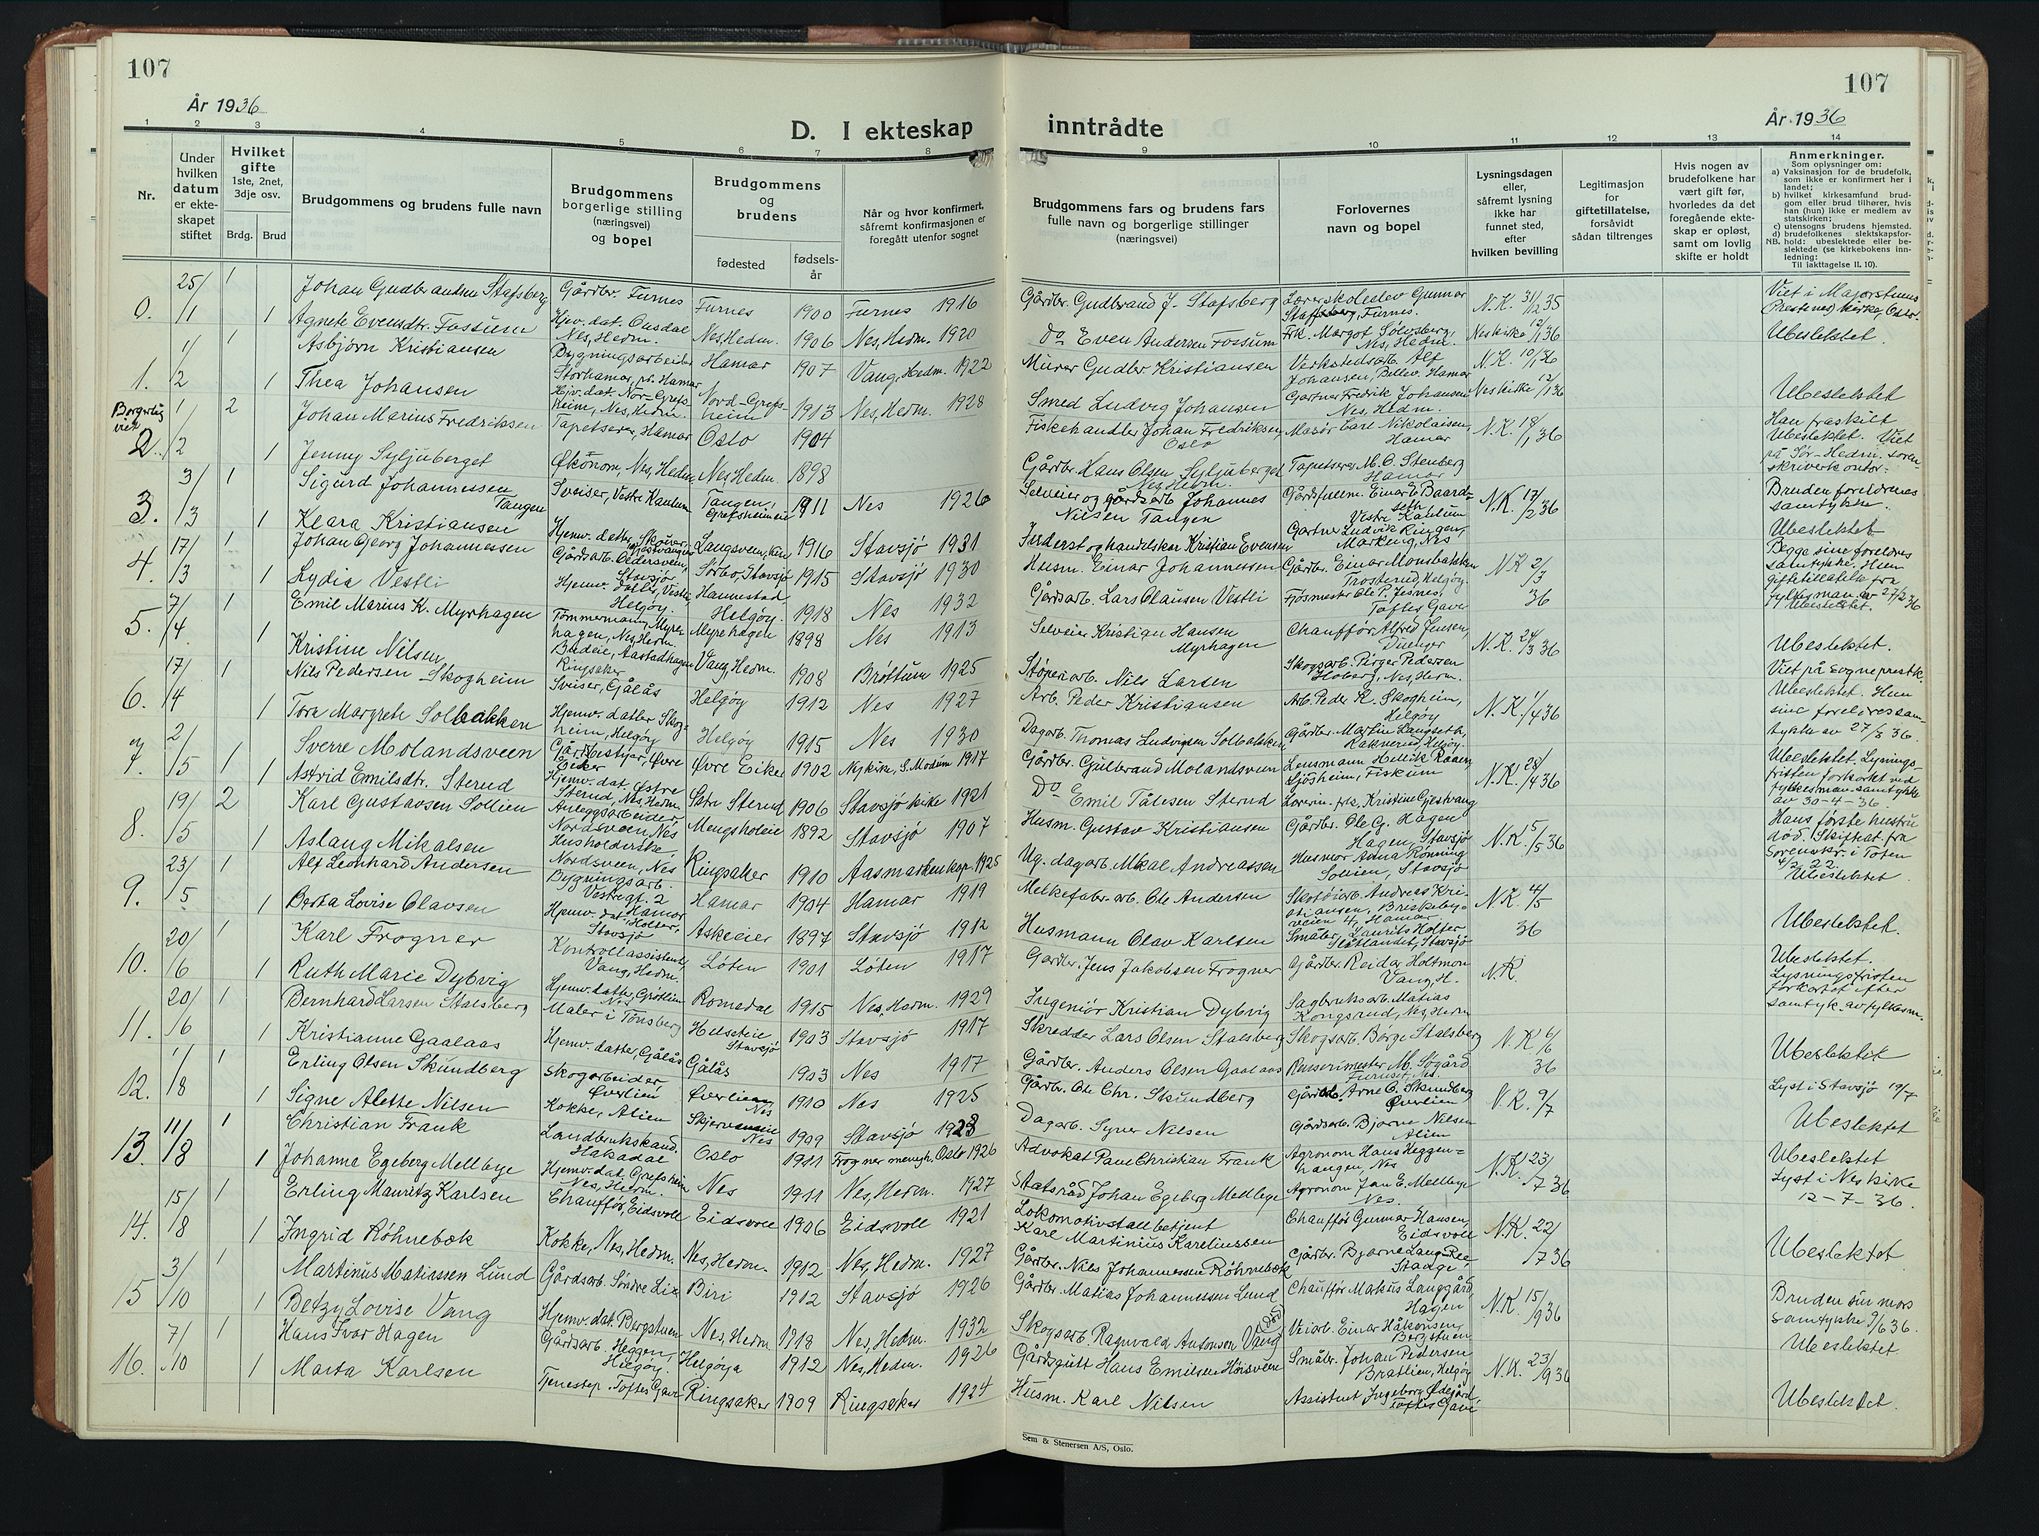 107
107
År 1936
År 1936
D. I ekteskap inntrådte
1 2 3 4 5 6 7 8 9 10 11 12 13 14
Nr.
Under hvilken datum er ekteskapet stiftet
Hvilket gifte 1ste, 2net, 3dje osv.
Brdg. Brud
Brudgommens og brudens fulle navn
Brudgommens borgerlige stilling (næringsvei) og bopel
Brudgommens og brudens
fødested
fødselsår
Når og hvor konfirmert, såfremt konfirmasjonen er foregått utenfor sognet
Brudgommens fars og brudens fars fulle navn og borgerlige stillinger (næringsvei)
Forlovernes navn og bopel
Lysningsdagen eller, såfremt lysning ikke har funnet sted, efter hvilken bevilling
Legitimasjon for giftetillatelse, forsåvidt sådan tiltrenges
Hvis nogen av brudefolkene har vært gift før, hvorledes da det foregående ekteskap er opløst, samt om lovlig skifte er holdt
Anmerkninger.
Som oplysninger om:
a) Vaksinasjon for de brudefolk, som ikke er konfirmert her i landet;
b) hvilket kirkesamfund brudgom eller brud tilhører, hvis han (hun) ikke er medlem av statskirken;
c) utensogns brudens hjemsted.
d) brudefolkenes slektskapsforhold: ubeslektede eller beslektede (se kirkebokens innledning:
NB. Til iakttagelse II. 10).
0. 25/1 1 Johan Gudbrandsen Stafsberg Gårdbr. Furnes Furnes 1900 Furnes 1916 Gårdbr. Gudbrand J. Stafsberg Lærerskoleelev Gunnar Stafsberg, Furnes. N.K. 31/12 35 Viet i Majorstuens Prestenes kirke, Oslo.
1 Agnete Evensdtr. Fossum Hjv. dat. Nes, Hedm. Nes, Hedm. 1906 Nes, Hedm. 1920 Do Even Andersen Fossum Frk. Margot Solvsberg, Nes, Hedm. Neskirke 12/1 36 Ubeslektet.
1. 1/2 1 Asbjørn Kristiansen Bygningsarbeider Storhamar pr. Hamar Hamar 1907 Vang, Hedm. 1922 Murer Gudbr. Kristiansen Verkstedsarb. Alf Johansen, Bellev. Hamar N.K. 10/1 36
1 Thea Johansen Hjv. dat. Nor-Grefsheim, Nes, Hedm. Nord-Grefsheim 1913 Nes, Hedm. 1928 Smed Ludvig Johansen Gartner Fredrik Johansen Nes, Hedm. Neskirke 12/1 36 Ubeslektet
Borgerlig viet
2. 1/2 2 Johan Marius Fredriksen Tapetserer, Hamar Oslo 1904 Fiskehandler Johan Fredriksen, Oslo Major Carl Nikolaisen, Hamar N.K. 18/1 36 Han fraskilt Ubeslektet. Viet på Sør-Hedm. sorenskriverkontor.
1 Jenny Syljuberget Økonom, Nes, Hedm. Nes, Hedm. 1898 Gårdbr. Hans Olsen Syljuberget Nes, Hedm. Tapetserer M. O. Stenberg Hamar
3. 3/3 1 Sigurd Johannessen Tangen Sveiser, Vestre Kaulum Tangen, Grefsheimeie 1911 Nes 1926 Selveier og gårdsarb. Johannes Nilsen Tangen Gårdfullm. Einar E. Baardseth Vestre Kaulum N.K. 17/2 36 Bruden foreldrenes samtykke.
1 Klara Kristiansen Hjemv. datter, Skøyen, 1916 Stavsjø 1931 Inderst og handelskar Kristian Evensen Gartner Ludvik Ringen, Markeng, Nes Ubeslektet
4. 17/3 1 Johan Georg Johannessen Gårdsarb. Pedersveen, Stavsjø Sørbo, Stavsjø 1915 Stavsjø 1930 Husm. Einar Johannessen Gårdbr. Einar Monsbakken Trosterud, Helgøy. N.K. 2/3 36 Begge sine foreldres samtykke. Hun giftetillatelse fra fylkesman av 27/2 36
1 Lydia Vestli Hjemv. Helgøy. Helgøy. 1918 Nes 1932 Gårdsarb. Lars Olausen Vestli Fjøsmester Ole P. Jesnes, Toftes Gave Ubeslektet.
5. 7/4 1 Emil Marius K. Myrhagen Tømmermann, Myrhagen, Nes, Hedm. Myrhagen 1898 Nes 1913 Selveier Kristian Hansen Myrhagen Chauffør, Alfred Jensen, Dienger N.K. 24/3 36 Ubeslektet.
1 Kristine Nilsen Budeie, Aastadhagen Ringsaker Vang, Hedm. 1908 Brøttum 1925 Støperiarb. Nils Larsen Skogsarb. Birger Pedersen Hoberg, Nes, Hedm. Viet på sogneprestk.
6. 17/4 1 Nils Pedersen Skogheim Sveiser, Gålås Helgøy 1912 Nes 1927 Arb. Peder Kristiansen Arb. Peder K. Skogheim, Helgøy N.K. 1/4 36 Ubeslektet. Hun sine foreldres samtykke av 27/3 36.
1 Tora Margrete Solbakken Hjemv. datter Skogheim, Helgøy Helgøy 1915 Nes 1930 Dagarb. Thomas Ludvigsen Solbakken Gårdbr. Martin Langseth, Raknerud, Helgøy.
7. 2/5 1 Sverre Molandsveen Gårdbestyrer, Øvre Eiker Øvre Eiker 1902 Nykirke, S. Modum 1917 Gårdbr. Gulbrand Molandsveen Lensmann Hellik Raaen, Sjøsheim, Fiskum N.K. 28/4 36 Ubeslektet. Lysningsfristen forkortet ved fylkesman samtykke av 30-4-36.
1 Astrid Emilsdtr. Sterud Hjemv. dat. Østre Sterud, Nes, Hedm. Sterud 1906 Stavsjø kirke 1921 Do Emil Tålesen Sterud Lærerin. frk. Kristine Gjestvang
8. 19/5 2 Karl Gustavsen Sollien Anleggsarbeider, Nordsveen, Nes Mengsholeie 1892 Stavsjø 1907 Husm. Gustav Kristiansen Gårdbr. Ole G. Hagen Hagen, Stavsjø N.K. 5/5 36 Hans første hustru død. Skiftat. fra Sorenskr. i Toten 4/2 22. Ubeslektet
1 Aslaug Mikalsen Husholderske, Nordsveen, Nes Ringsaker 1910 Aasmarken kap. 1925 Ug. dagarb. Mikal Andreassen Husmor Anna Rønning Sollien, Stavsjø
9. 23/5 1 Alf Leonhard Andersen Bygningsarb. Vestregt. 2 Hamar Hamar 1904 Hamar 1919 Melkefabr. arb. Ole Andersen Skotøiarb. Andreas Kristiansen, Briskebyveien 4, Hamar. N.K. 4/5 36
1 Berta Lovise Olavsen Hjemv. dat. Holter, Stavsjø Askeeier 1897 Stavsjø 1912 Husmann Olav Karlsen Småbr. Laurits Holter Stavsjø Ubeslektet.
10. 20/6 1 Karl Frogner Kontrollassistent, Vang, Hedm. Løten 1901 Løten 1917 Gårdbr. Jens Jakobsen Frogner Gårdbr. Reidar Holtmon Vang, H. N.K. Ubeslektet. Lysningsfristen forkortet efter samtyk. av fylkesm.
1 Ruth Marie Dybvig Hjemv. datter, Grøtlien Nes Romedal 1915 Nes, Hedm. 1929 Ingeniør Kristian Dybvig Sagbruksarb. Matias Kongsrud, Nes, Hedm
11. 20/6 1 Bernhard Larsen Stalsberg Maler i Tønsberg Helsetie Stavsjø 1903 Stavsjø 1917 Skredder Lars Olsen Stalsberg Skogsarb. Børge Stalsberg N.K. 6/6 36
1 Kristianne Gaalaas Hjemv. datter, Gålås Gålås 1903 Nes 1917 Gårdbr. Anders Olsen Gaalaas Renserimester M. Søgård Furuset, Nes. Ubeslektet
12. 1/8 1 Erling Olsen Skundberg Skogarbeider Øverlien Øverlien Nes 1910 Nes 1925 Gårdbr. Ole Chr. Skundberg Gårdb. Arne O. Skundberg Øverlien N.K. 9/7 Lyst i Stavsjø 19/7
1 Signe Alette Nilsen Kokke, Alien Nes 1909 Stavsjø 1923 Dagarb. Syver Nilsen Gårdsarb. Bjarne Nilsen Alien Ubeslektet
13. 11/8 1 Christian Frank Landbrukskand. Hakadal Oslo 1911 Frogner menigh. Oslo 1926 Advokat Paul Christian Frank Agronom Hans Heggenhaugen, Nes N.K. 23/7 36 Ubeslektet Lyst i Nes kirke 12-7-36.
1 Johanna Egeberg Mellbye Hjemv. dat. Grefsheim Nes, Hedm. Nes 1911 Nes, Hedm. 1927 Statsråd Johan Egeberg Mellbye Agronom Jan E. Mellbye Nes.
14. 15/8 1 Erling Mauritz Karlsen Chauffør, Eidsvoll Eidsvoll 1906 Eidsvoll 1921 Lokomotivstallbetjent Karl Martinius Kareliussen Chauffør Gunnar Hansen, Eidsvoll N.K. 22/7 36
1 Ingrid Røhnebæk Kokke, Nes, Hedm. Nes, Hedm. 1912 Nes, Hedm. 1927 Gårdbr. Nils Johannessen Røhnebæk Gårdbr. Bjarne Stange Ubeslektet
15 3/10 1 Martinus Matiassen Lund Gårdsarb. Søndre Lie Biri 1912 Stavsjø 1926 Gårdbr. Matias Johannessen Lund Chauffør Markus Langgård Hagen N.K. 15/9 36 Bruden sin mors samtykke 9/6 36.
1 Betzy Lovise Vang Hjemv. dat. Bergstuen Nes, Hedm 1918 Nes, Hedm. 1932 Skogsarb. Ragnvald Antonsen Vang (død) Veiarb. Einar Håkonsen, Bergstuen Ubeslektet
16. 7/10 1 Hans Ivar Hagen Gårdsarb. Heggen, Helgøy. Helgøya 1912 Nes, Hedm. 1926 Gårdsgutt Hans Emilsen Hørsveen Småbr. Johan Pedersen Bratlien, Helgøy N.K. 23/9 36
1 Marta Karlsen Tjenestep. Toftes Gave Ringsaker 1909 Ringsaker 1924 Husm. Karl Nilsen Assistent Ingeborg Ødegård Toftes Gave Ubeslektet.
Sem & Stenersen A/S, Oslo.